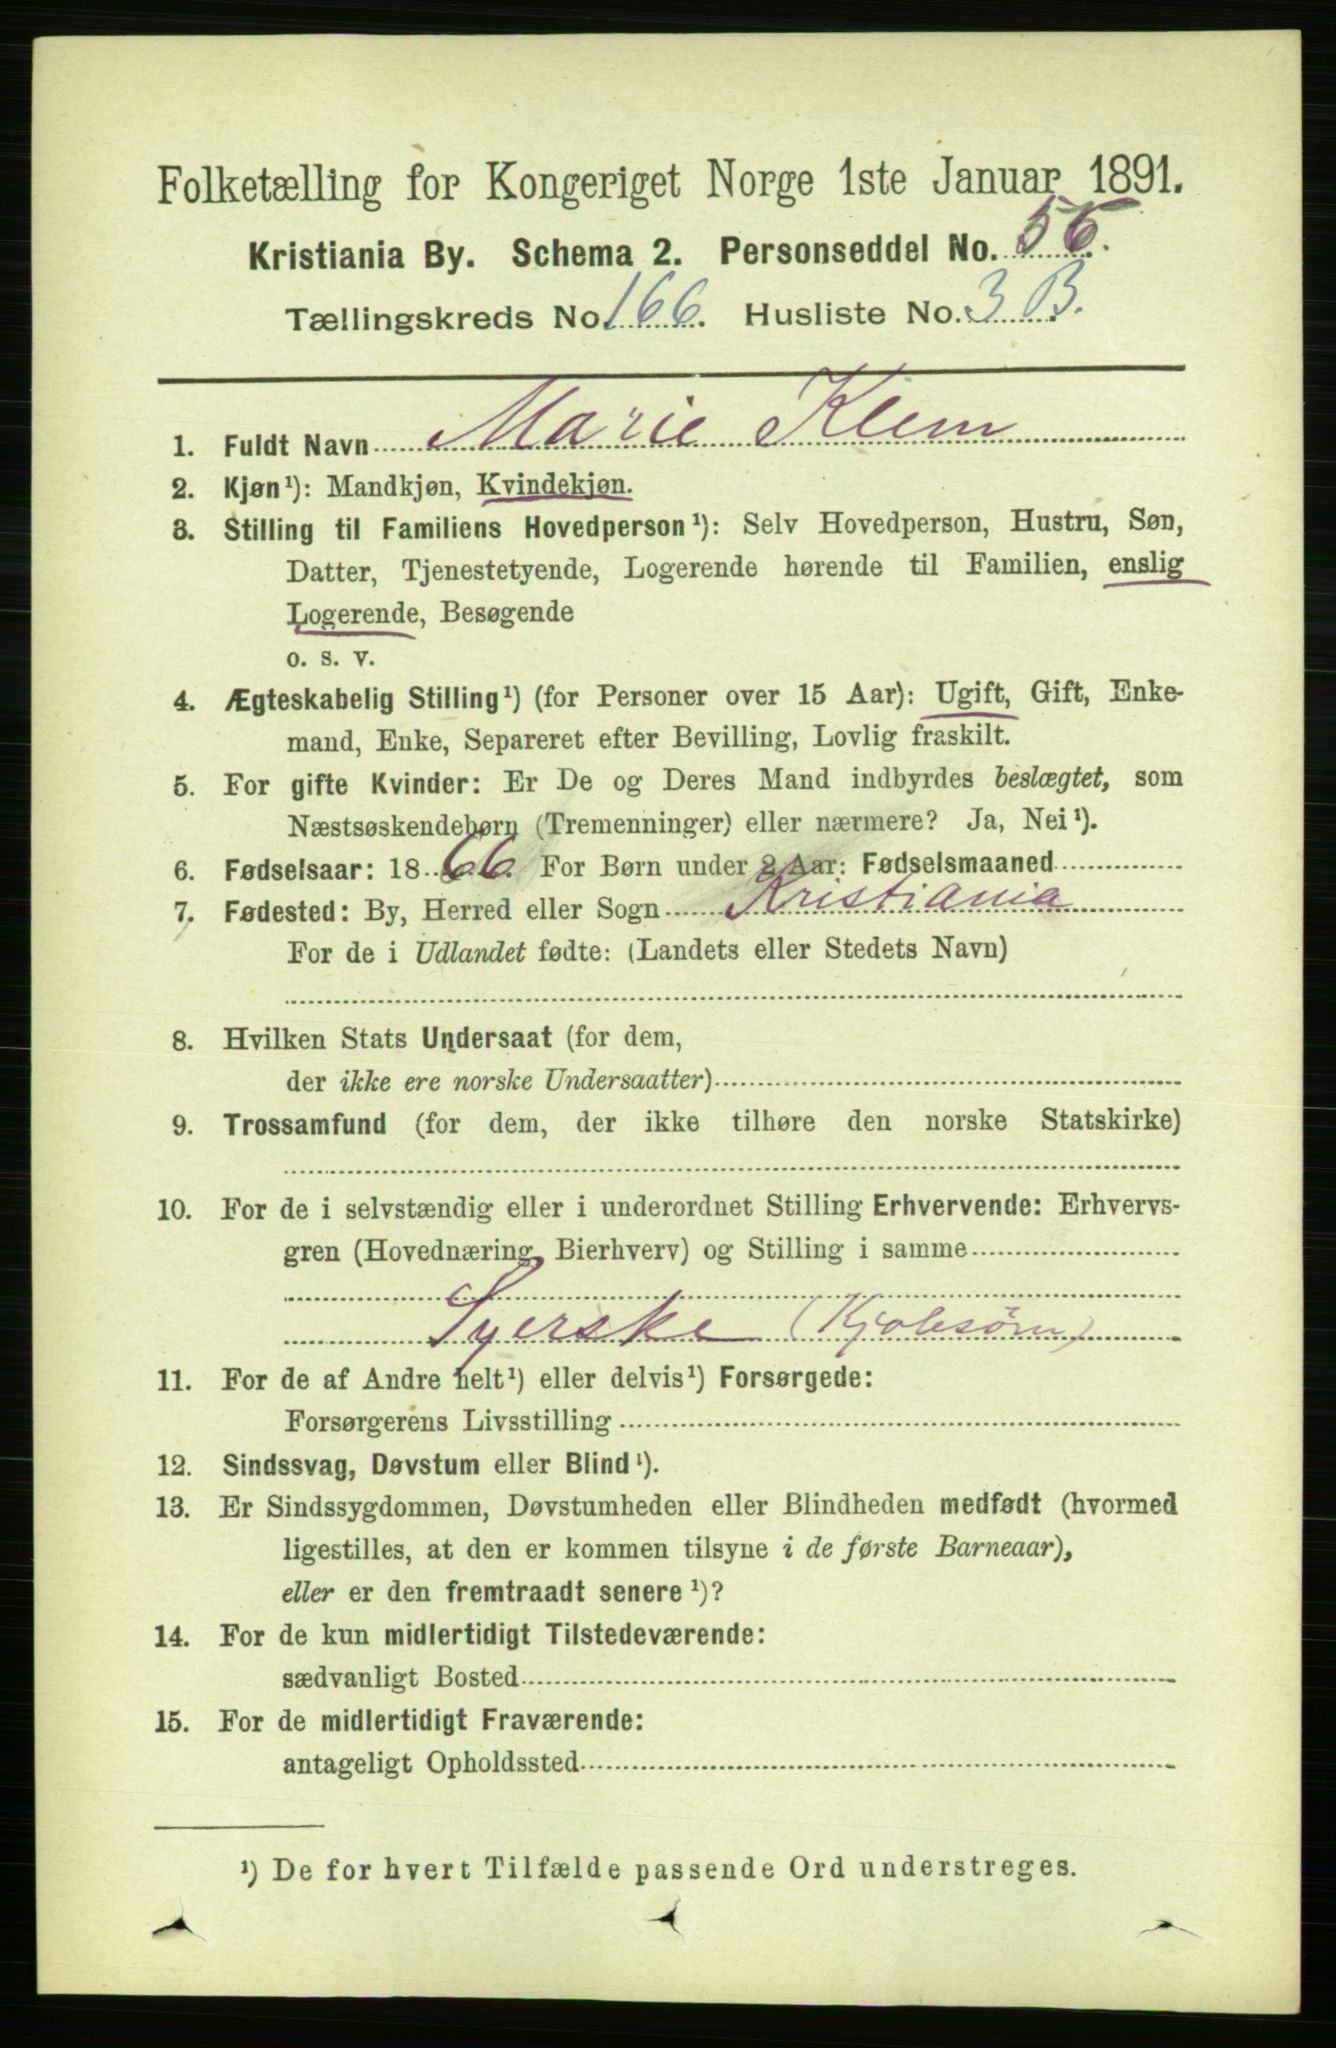 Folketælling for Kongeriget Norge 1ste Januar 1891.
Kristiania By. Schema 2. Personseddel No. 56.
Tællingskreds No. 166. Husliste No. 3 B.
1. Fuldt Navn Marie Klem
2. Kjøn¹): Mandkjøn, Kvindekjøn.
3. Stilling til Familiens Hovedperson¹): Selv Hovedperson, Hustru, Søn,
Datter, Tjenestetyende, Logerende hørende til Familien, enslig
Logerende, Besøgende
o. s. v.
4. Ægteskabelig Stilling¹) (for Personer over 15 Aar): Ugift, Gift, Enke-
mand, Enke, Separeret efter Bevilling, Lovlig fraskilt.
5. For gifte Kvinder: Er De og Deres Mand indbyrdes beslægtet, som
Næstsøskendebørn (Tremenninger) eller nærmere? Ja, Nei¹).
6. Fødselsaar: 1866. For Børn under 2 Aar: Fødselsmaaned
7. Fødested: By, Herred eller Sogn Kristiania
For de i Udlandet fødte: (Landets eller Stedets Navn)
8. Hvilken Stats Undersaat (for dem,
der ikke ere norske Undersaatter)
9. Trossamfund (for dem, der ikke tilhøre den norske Statskirke)
10. For de i selvstændig eller i underordnet Stilling Erhvervende: Erhvervs-
gren (Hovednæring, Bierhverv) og Stilling i samme
Syerske (Kjolesøm)
11. For de af Andre helt¹) eller delvis¹) Forsørgede:
Forsørgerens Livsstilling
12. Sindssvag, Døvstum eller Blind¹).
13. Er Sindssygdommen, Døvstumheden eller Blindheden medfødt (hvormed
ligestilles, at den er kommen tilsyne i de første Barneaar),
eller er den fremtraadt senere¹)?
14. For de kun midlertidigt Tilstedeværende:
sædvanligt Bosted
15. For de midlertidigt Fraværende:
antageligt Opholdssted
¹) De for hvert Tilfælde passende Ord understreges.